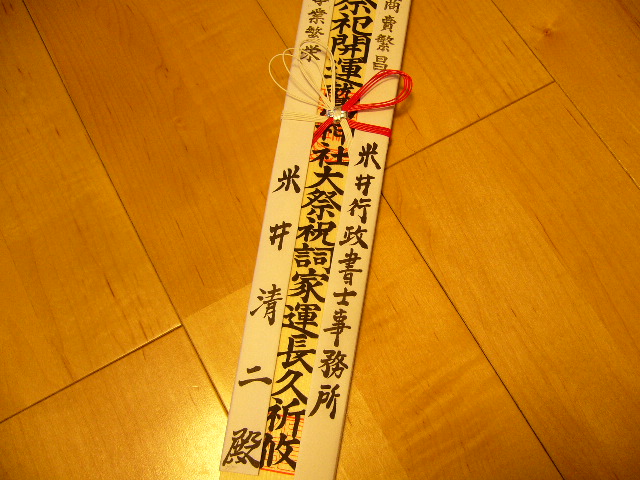 商賣繁昌
米井行政書士事務所
祭祀開運
社大祭祝詞家運長久祈攸
業繁栄
米井清二殿